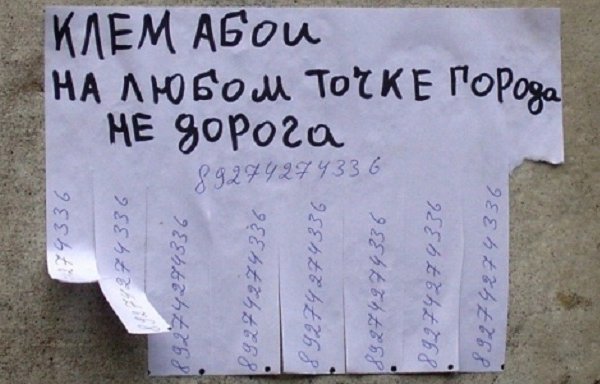 КЛЕМ АБОИ
НА ЛЮБОМ ТОЧКЕ ГОРОДА
НЕ ДОРОГА
89274274336
274336
89274274336
89274274336
89274274336
89274274336
89274274336
89274274336
89274274336